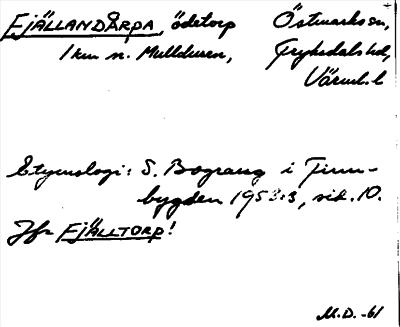 FJÄLLANDÅRPA, ödetorp Östmarks sn,
1 km n. Mulltjärn, Fryksdals hd,
Värml. l
Etymologi: S. Bograng i Finn-
bygden 1953:3, sid. 10.
Jfr FJÄLLTORP!
M.D. -61